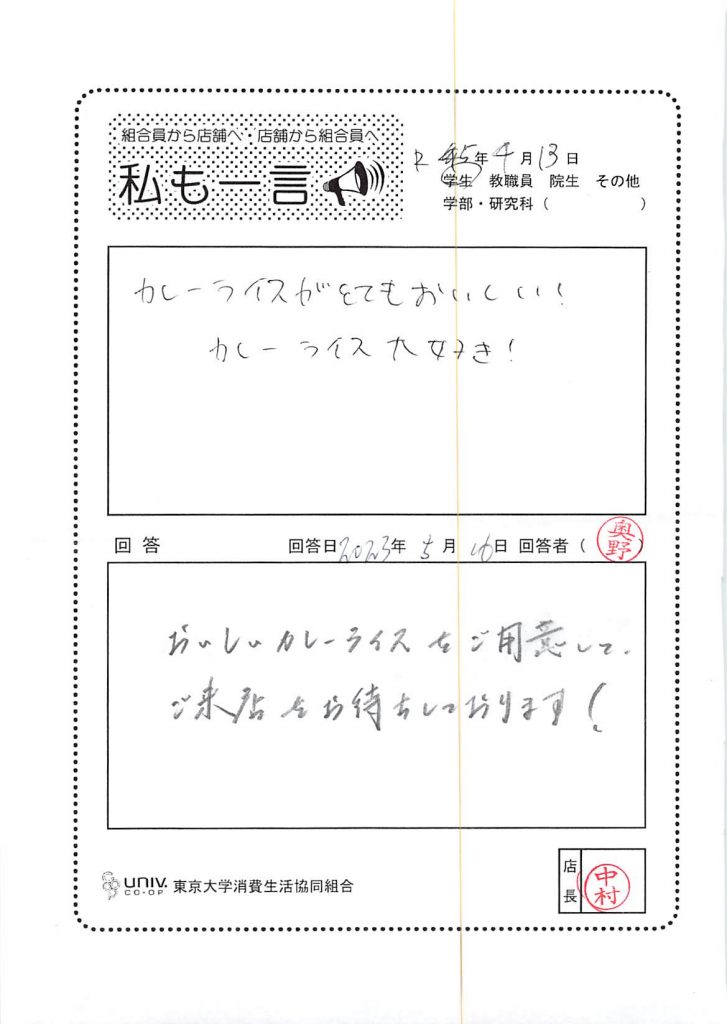 組合員から店舗へ・店舗から組合員へ
私も一言
R 5年4月13日
学生 教職員 院生 その他
学部・研究科( )
カレーライスがとてもおいしい!
カレーライス大好き!
回答 回答日2023年5月16日 回答者(奥野)
おいしいカレーライスをご用意して、
ご来店をお待ちしております!
UNIV. CO-OP 東京大学消費生活協同組合
店長 中村